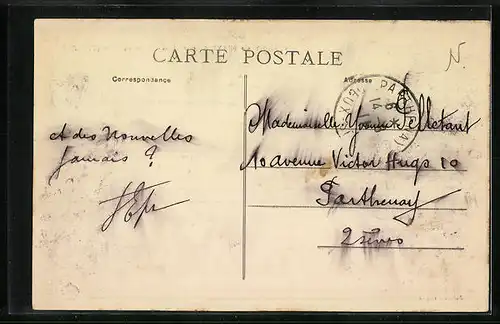 CARTE POSTALE
N.
Correspondance
Adresse
et des Nouvelles
jamais ?
Mademoiselle Yvonne
10 avenue Victor Hugo 10
Parthenay
2 sèvres